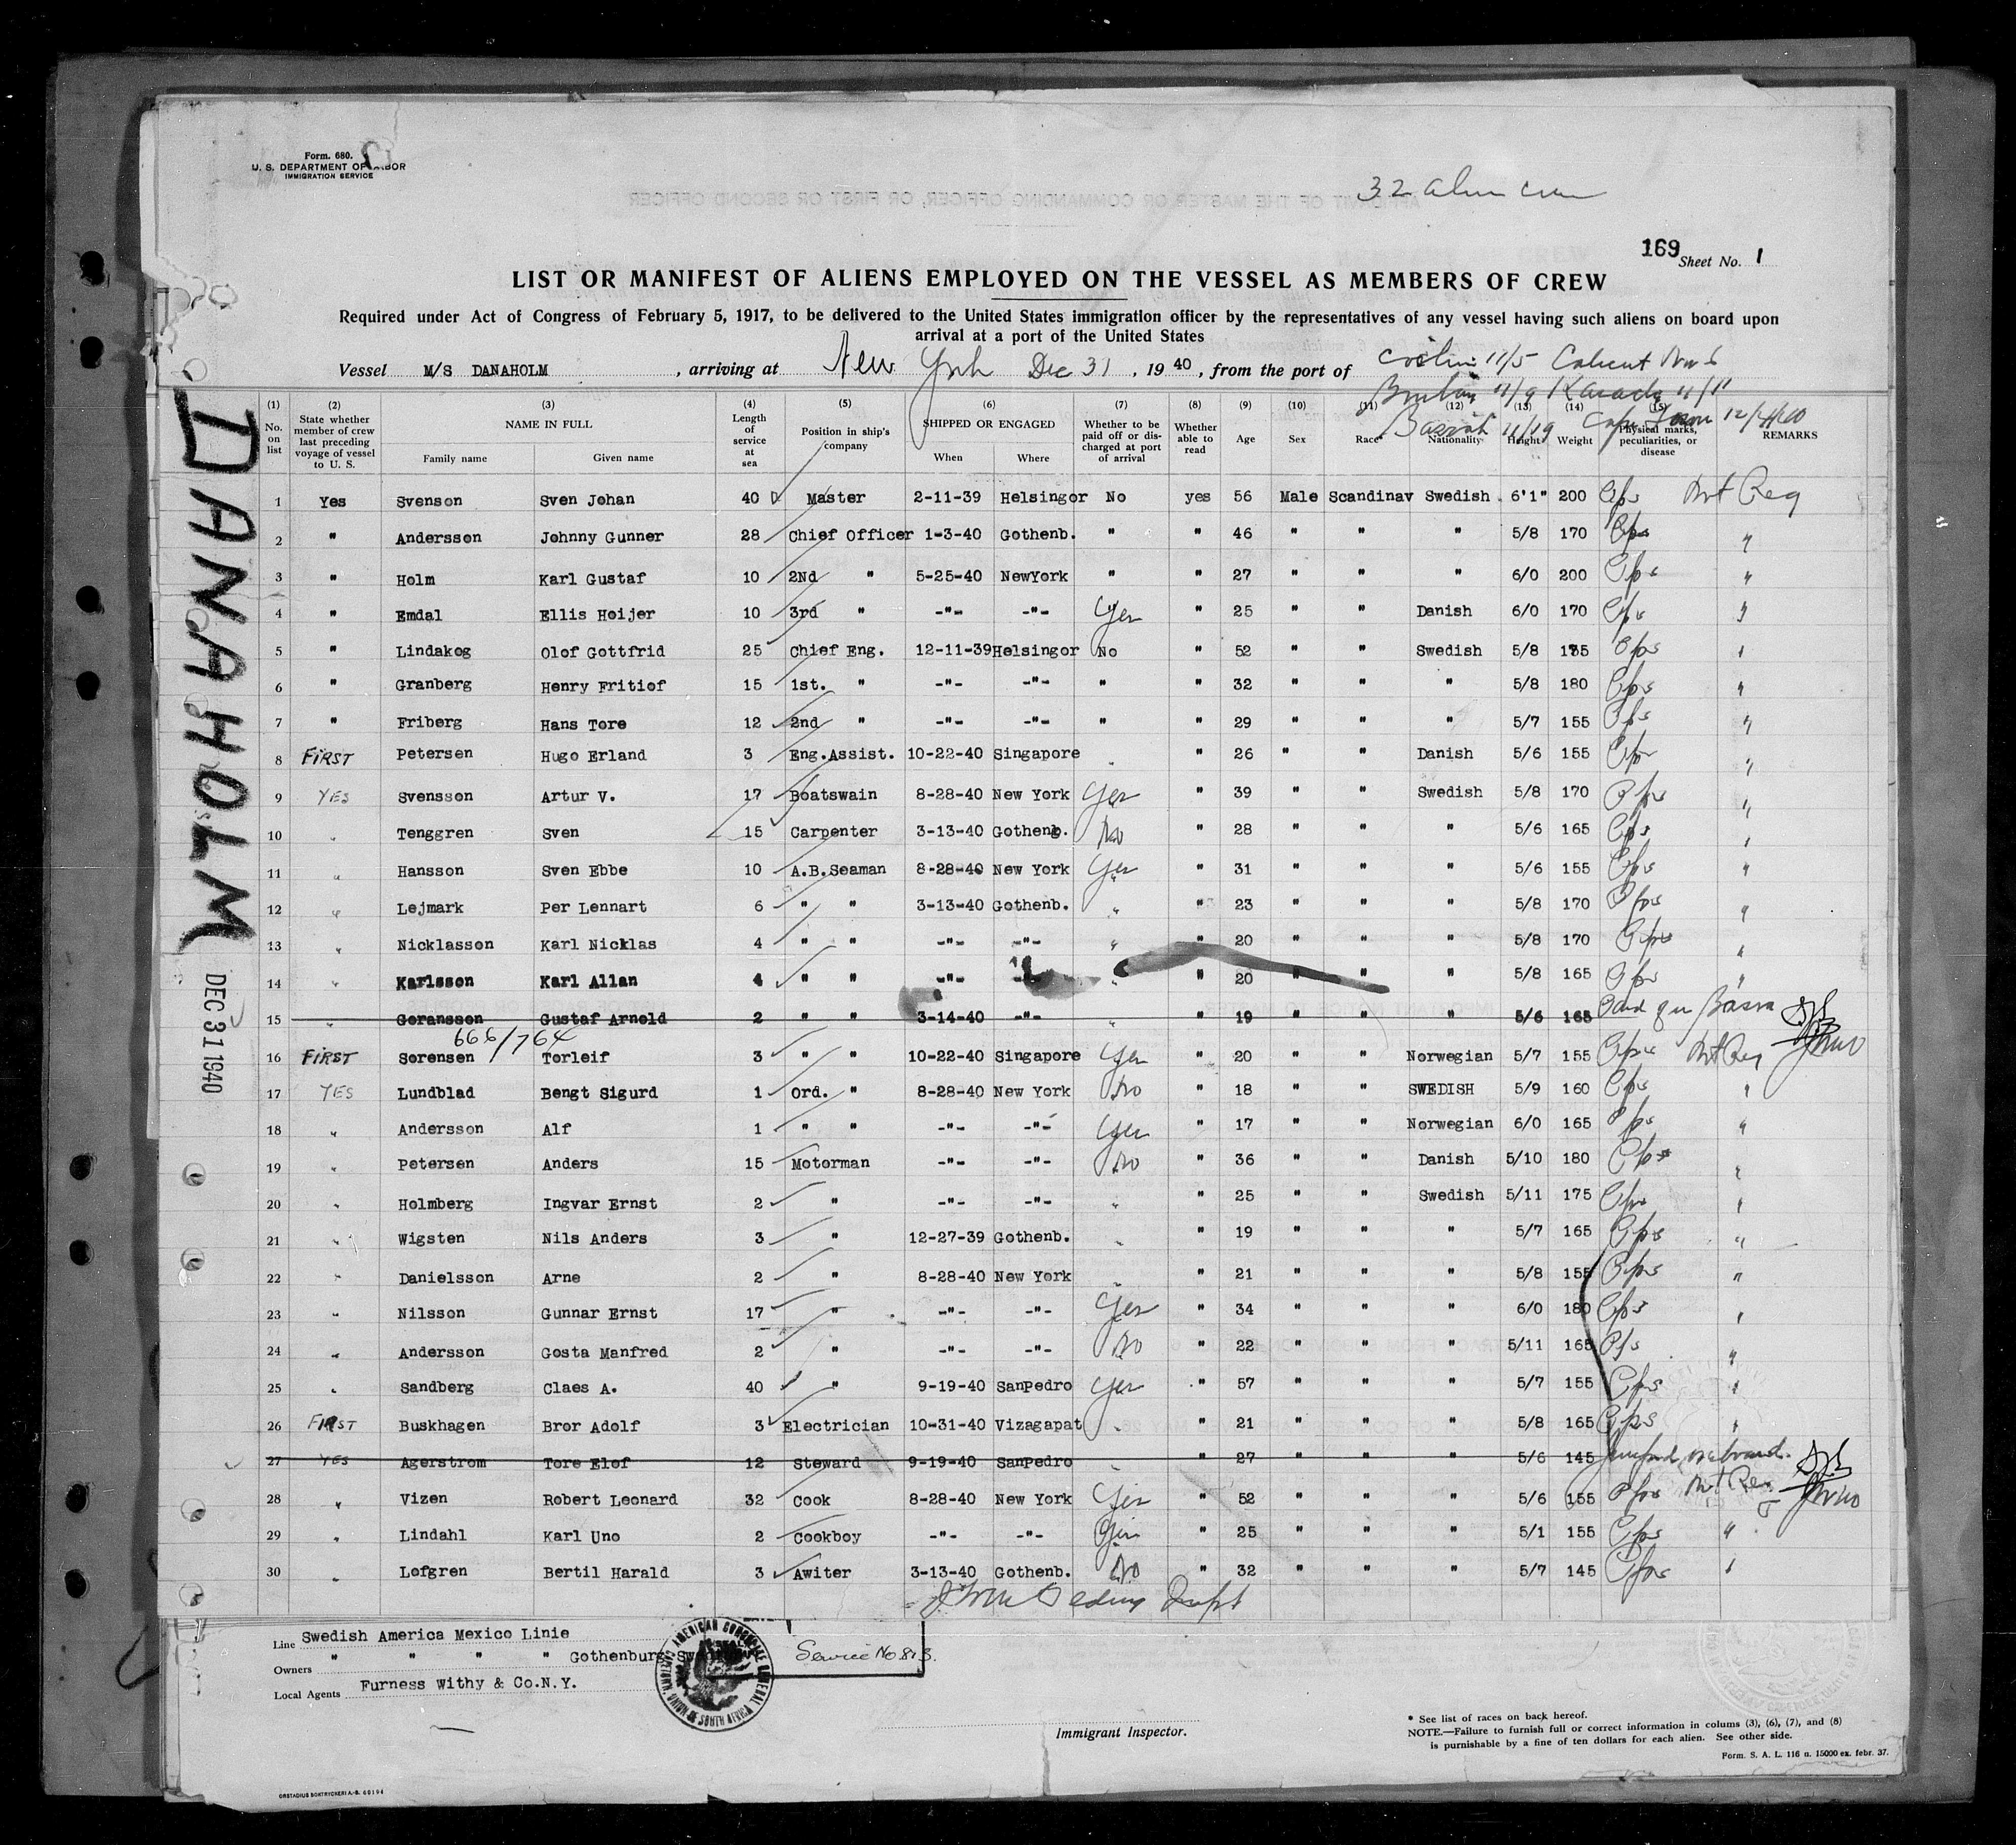 Form. 680.
U. S. DEPARTMENT OF LABOR
IMMIGRATION SERVICE
32 alien crew
169 Sheet No. 1
LIST OR MANIFEST OF ALIENS EMPLOYED ON THE VESSEL AS MEMBERS OF CREW
Required under Act of Congress of February 5, 1917, to be delivered to the United States immigration officer by the representatives of any vessel having such aliens on board upon
arrival at a port of the United States
Vessel M/S DANAHOLM , arriving at New York Dec 31 , 19 40 , from the port of Cochin 11/5 Calicut Nov 6
Bombay 11/9 Karachi 11/11
Basrah 11/19 Cape Town 12/4/40
DANAHOLM
DEC 31 1940
(1) No. on list (2) State whether member of crew last preceding voyage of vessel to U. S. (3) NAME IN FULL Family name Given name (4) Length of service at sea (5) Position in ship's company (6) SHIPPED OR ENGAGED When Where (7) Whether to be paid off or discharged at port of arrival (8) Whether able to read (9) Age (10) Sex (11) Race* (12) Nationality (13) Height (14) Weight (15) Physical marks, peculiarities, or disease REMARKS
1 Yes Svenson Sven Johan 40 Master 2-11-39 Helsingor No yes 56 Male Scandinav Swedish 6'1" 200 Not Reg
2 " Andersson Johnny Gunner 28 Chief Officer 1-3-40 Gothenb. " " 46 " " " 5/8 170 "
3 " Holm Karl Gustaf 10 2Nd " 5-25-40 NewYork " " 27 " " " 6/0 200 "
4 " Emdal Ellis Hoijer 10 3rd " -"- -"- Yes " 25 " " Danish 6/0 170 "
5 " Lindakog Olof Gottfrid 25 Chief Eng. 12-11-39 Helsingor No " 52 " " Swedish 5/8 175 "
6 " Granberg Henry Fritiof 15 1st. " -"- -"- " " 32 " " " 5/8 180 "
7 " Friberg Hans Tore 12 2nd " -"- -"- " " 29 " " " 5/7 155 "
8 FIRST Petersen Hugo Erland 3 Eng.Assist. 10-22-40 Singapore " " 26 " " Danish 5/6 155 "
9 YES Svensson Artur V. 17 Boatswain 8-28-40 New York Yes " 39 " " Swedish 5/8 170 "
10 " Tenggren Sven 15 Carpenter 3-13-40 Gothenb. No " 28 " " " 5/6 165 "
11 " Hansson Sven Ebbe 10 A.B.Seaman 8-28-40 New York Yes " 31 " " " 5/6 155 "
12 " Lejmark Per Lennart 6 " " 3-13-40 Gothenb. " " 23 " " " 5/8 170 "
13 " Nicklasson Karl Nicklas 4 " " -"- -"- " " 20 " " " 5/8 170 "
14 " Karlsson Karl Allan 4 " " -"- -"- " " 20 " " " 5/8 165 "
15 " Goransson Gustaf Arnold 2 " " 3-14-40 -"- " " 19 " " " 5/6 165 Basra
666/764
16 FIRST Sorensen Torleif 3 " " 10-22-40 Singapore Yes " 20 " " Norwegian 5/7 155 Not Reg
17 YES Lundblad Bengt Sigurd 1 Ord. " 8-28-40 New York No " 18 " " SWEDISH 5/9 160 "
18 " Andersson Alf 1 " " -"- -"- Yes " 17 " " Norwegian 6/0 165 "
19 " Petersen Anders 15 Motorman -"- -"- No " 36 " " Danish 5/10 180 "
20 " Holmberg Ingvar Ernst 2 " -"- -"- " " 25 " " Swedish 5/11 175 "
21 " Wigsten Nils Anders 3 " 12-27-39 Gothenb. " " 19 " " " 5/7 165 "
22 " Danielsson Arne 2 " 8-28-40 New York " " 21 " " " 5/8 155 "
23 " Nilsson Gunnar Ernst 17 " -"- -"- Yes " 34 " " " 6/0 180 "
24 " Andersson Gosta Manfred 2 " -"- -"- No " 22 " " " 5/11 165 "
25 " Sandberg Claes A. 40 " 9-19-40 SanPedro Yes " 57 " " " 5/7 155 "
26 FIRST Buskhagen Bror Adolf 3 Electrician 10-31-40 Vizagapat " " 21 " " " 5/8 165 "
27 YES Agerstrom Tore Elof 12 Steward 9-19-40 SanPedro " " 27 " " " 5/6 145
28 " Vizen Robert Leonard 32 Cook 8-28-40 New York Yes " 52 " " " 5/6 155 Not Reg
29 " Lindahl Karl Uno 2 Cookboy -"- -"- Yes " 25 " " " 5/1 155 "
30 " Lofgren Bertil Harald 3 Awiter 3-13-40 Gothenb. No " 32 " " " 5/7 145 "
Line Swedish America Mexico Linie
Owners " " " " Gothenburg, Sweden
Local Agents Furness Withy & Co.N.Y.
AMERICAN CONSULATE GENERAL CAPETOWN, UNION OF SOUTH AFRICA
Service No 813.
Immigrant Inspector.
* See list of races on back hereof.
NOTE.—Failure to furnish full or correct information in colums (3), (6), (7), and (8)
is punishable by a fine of ten dollars for each alien. See other side.
Form. S. A. L. 116 n. 15000 ex. febr. 37.
ORSTADIUS BOKTRYCKERI A.-B. 60194